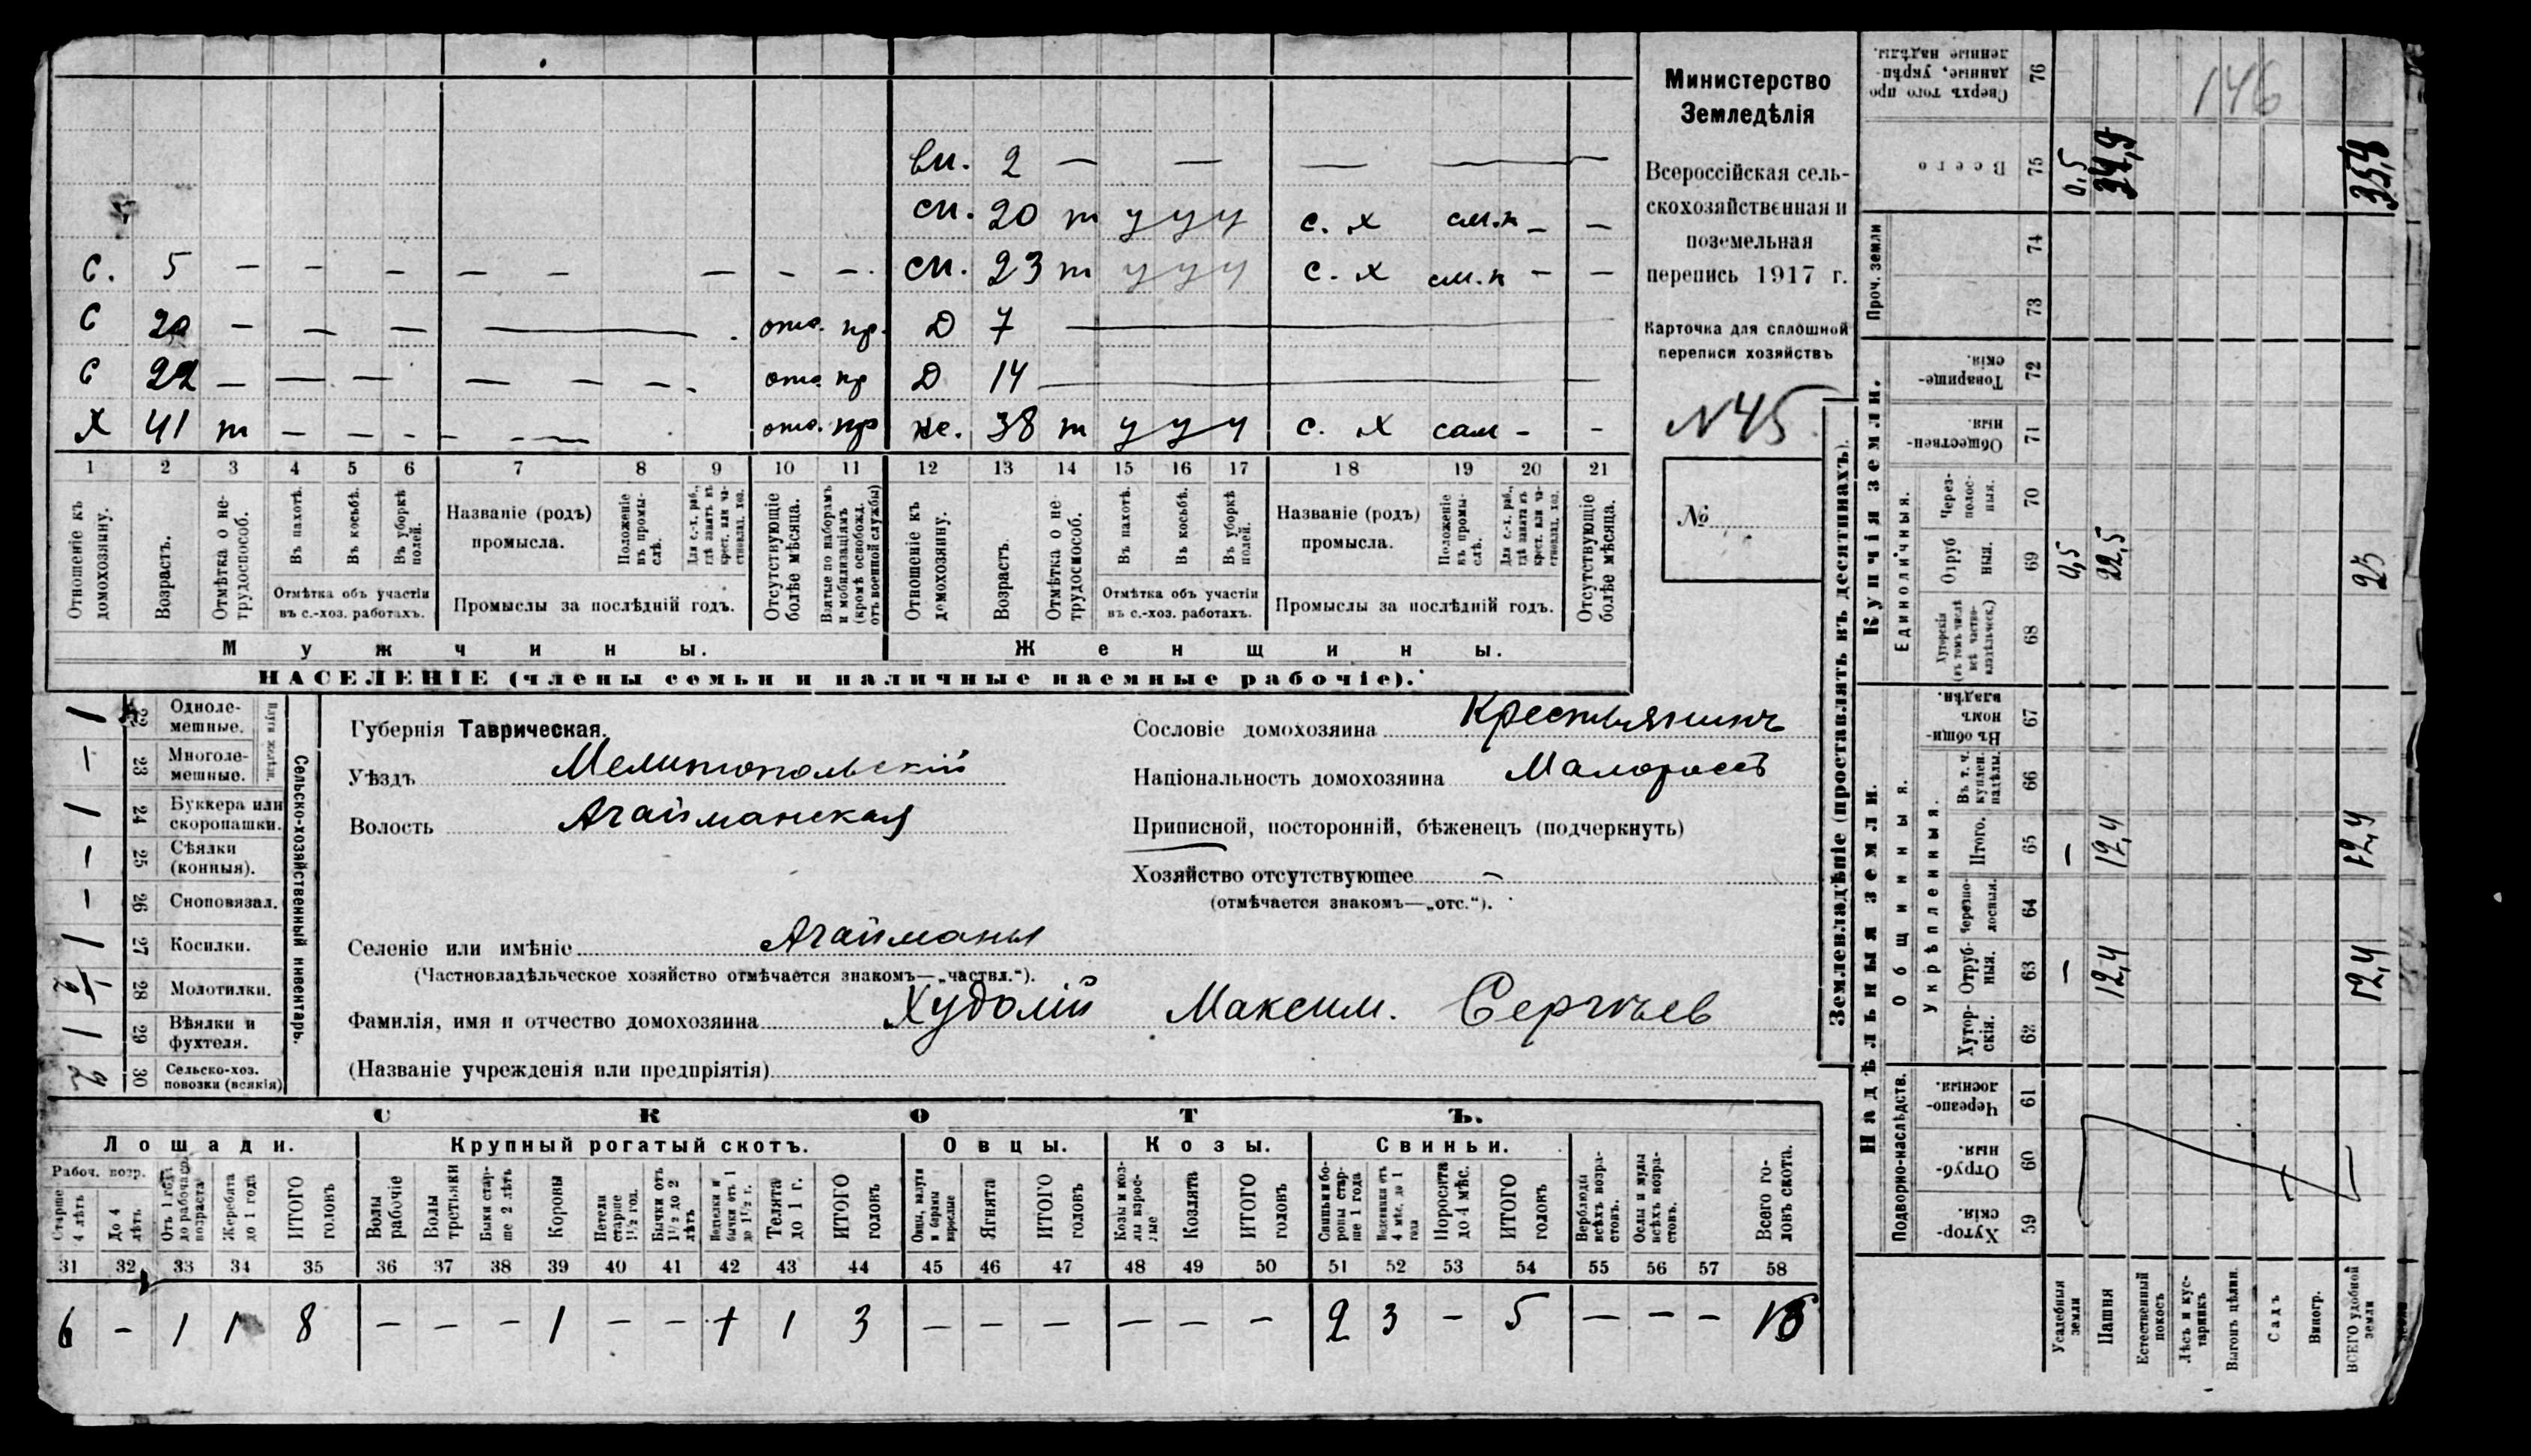 вн. 2 — — — —
сн. 20 т у у у с. х сам.п – –
с. 5 – – – – – – – – сн. 23 т у у у с. х сам.п – –
с 20 – – – — отс. пр. Д 7 —
с 22 – – – – – – отс. пр Д 14 —
Х 41 т – – – – — отс. пр же. 38 т у у у с. х сам – –
1 2 3 4 5 6 7 8 9 10 11 12 13 14 15 16 17 18 19 20 21
Отношеніе къ домохозяину.
Возрастъ.
Отмѣтка о не-трудоспособ.
Въ пахотѣ.
Въ косьбѣ.
Въ уборкѣ полей.
Отмѣтка объ участіи въ с.-хоз. работахъ.
Названіе (родъ) промысла.
Положеніе въ промы-слѣ.
Для с.-х. раб., гдѣ занятъ въ крест. или ча-стновлад. хоз.
Промыслы за послѣдній годъ.
Отсутствующіе болѣе мѣсяца.
Взятые по наборамъ и мобилизаціямъ (кромѣ освобожд. отъ военной службы)
Отношеніе къ домохозяину.
Возрастъ.
Отмѣтка о не-трудоспособ.
Въ пахотѣ.
Въ косьбѣ.
Въ уборкѣ полей.
Отмѣтка объ участіи въ с.-хоз. работахъ.
Названіе (родъ) промысла.
Положеніе въ промы-слѣ.
Для с.-х. раб., гдѣ занята въ крест. или ча-стновлад. хоз.
Промыслы за послѣдній годъ.
Отсутствующіе болѣе мѣсяца.
Мужчины. Женщины.
НАСЕЛЕНІЕ (члены семьи и наличные наемные рабочіе).
Министерство
Земледѣлія
Всероссійская сель-
скохозяйственная и
поземельная
перепись 1917 г.
Карточка для сплошной
переписи хозяйствъ
№45
№
Сельско-хозяйственный инвентарь.
Плуги желѣзн.
1 22 Одноле-мешные.
– 23 Многоле-мешные.
1 24 Буккера или скоропашки.
– 25 Сѣялки (конныя).
– 26 Сноповязал.
1 27 Косилки.
1/2 28 Молотилки.
1 29 Вѣялки и фухтеля.
2 30 Сельско-хоз. повозки (всякія)
Губернія Таврическая.
Уѣздъ Мелитопольскій
Волость Агайманская
Сословіе домохозяина Крестьянинъ
Національность домохозяина Малороссъ
Приписной, посторонній, бѣженецъ (подчеркнуть)
Хозяйство отсутствующее –
(отмѣчается знакомъ—„отс.“).
Селеніе или имѣніе Агайманы
(Частновладѣльческое хозяйство отмѣчается знакомъ—„частвл.“).
Фамилія, имя и отчество домохозяина Худолій Максим. Сергѣев
(Названіе учрежденія или предпріятія)
СКОТЪ.
Лошади. Крупный рогатый скотъ. Овцы. Козы. Свиньи.
Рабоч. возр.
Старше 4 лѣтъ
До 4 лѣтъ.
Отъ 1 года до рабочаго возраста
Жеребята до 1 года
ИТОГО головъ
Волы рабочіе
Волы третьяки
Быки стар-ше 2 лѣтъ
Коровы
Нетели старше 1½ год.
Бычки отъ 1½ до 2 лѣтъ
Телушки и бычки отъ 1 до 1½ г.
Телята до 1 г.
ИТОГО головъ
Овцы, валухи и бараны взрослые
Ягнята
ИТОГО головъ
Козы и коз-лы взрос-лые
Козлята
ИТОГО головъ
Свиньи и бо-ровы стар-ше 1 года
Подсвинки отъ 4 мѣс. до 1 года
Поросята до 4 мѣс.
ИТОГО головъ
Верблюды всѣхъ возра-стовъ.
Ослы и мулы всѣхъ возра-стовъ.
Всего го-ловъ скота.
31 32 33 34 35 36 37 38 39 40 41 42 43 44 45 46 47 48 49 50 51 52 53 54 55 56 57 58
6 – 1 1 8 – – – 1 – – 1 1 3 – – – – – – 2 3 – 5 – – – 16
Землевладѣніе (проставлять въ десятинахъ).
Надѣльныя земли. Купчія земли.
Подворно-наслѣдств.
Общинныя.
Укрѣпленныя.
Единоличныя.
Проч. земли
Хутор-скія. 59
Отруб-ныя. 60
Черезпо-лосныя. 61
Хутор-скія. 62
Отруб-ныя. 63
Черезпо-лосныя. 64
Итого. 65
Въ т. ч. куплен. надѣлы. 66
Въ общи-номъ владѣн. 67
Хуторскія (въ томъ числѣ всѣ частно-владѣльческ.) 68
Отруб ныя. 69
Через-полос-ныя. 70
Обществен-ныя. 71
Товарище-скія. 72
73
74
Всего 75
Сверхъ того про данные, укрѣп-ленные надѣлы. 76
146
Усадебныя земли – – 0,5
Пашня 12,4 12,4 22,5 34,9
Естественный покосъ
Лѣсъ и кус-тарникъ
Выгонъ цѣлин.
Садъ
Виногр.
ВСЕГО удобной земли 12,4 12,4 23